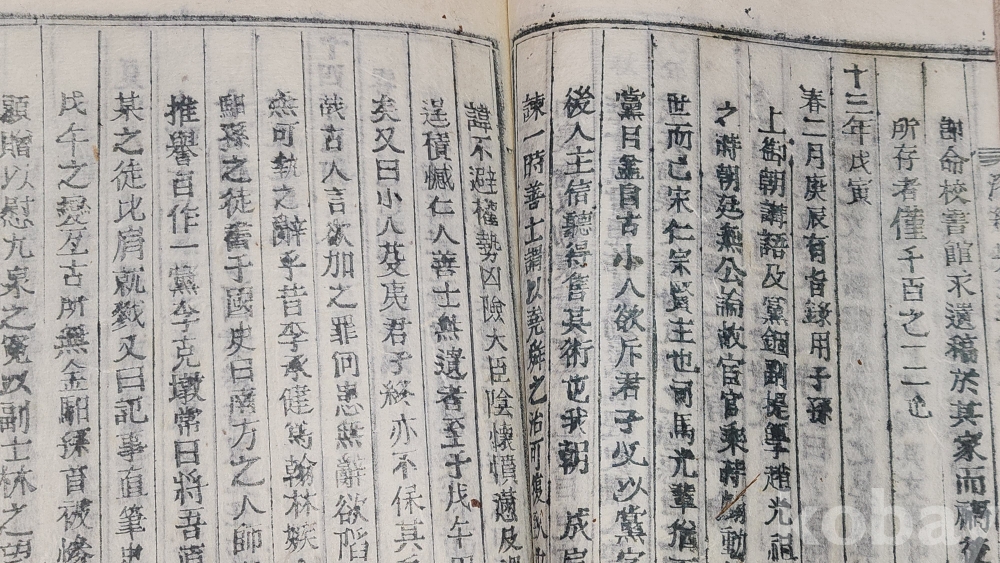 謝命校書館求遺稿於其家而禍後
所存者僅千百之一二也
十三年戊寅
春二月庚辰有旨錄用子孫
上御朝講語及黨錮副提學趙光祖
之時朝廷無公論故宦官乘時煽動
世而已宋仁宗賢主也司馬光輩指
黨目盖自古小人欲斥君子必以黨字
後人主信聽得售其術也我朝 成宗
諫一時善士謂以堯舜之治可復
諱不避權勢凶險大臣陰懷憤懣及
逞積憾仁人善士無遺者至于戊午
矣又曰小人芟夷君子終亦不保其
哉古人言欲加之罪何患無辭欲陷
無可執之辭乎昔李承健爲翰林嫉
馹孫之徒書于國史曰南方之人師
推譽自作一黨李克墩常曰將吾
某之徒比肩就戮又曰記事直筆史
戊午之變至古所無金馹孫首被慘
顯贈以慰九泉之寃以副士林之望
koba